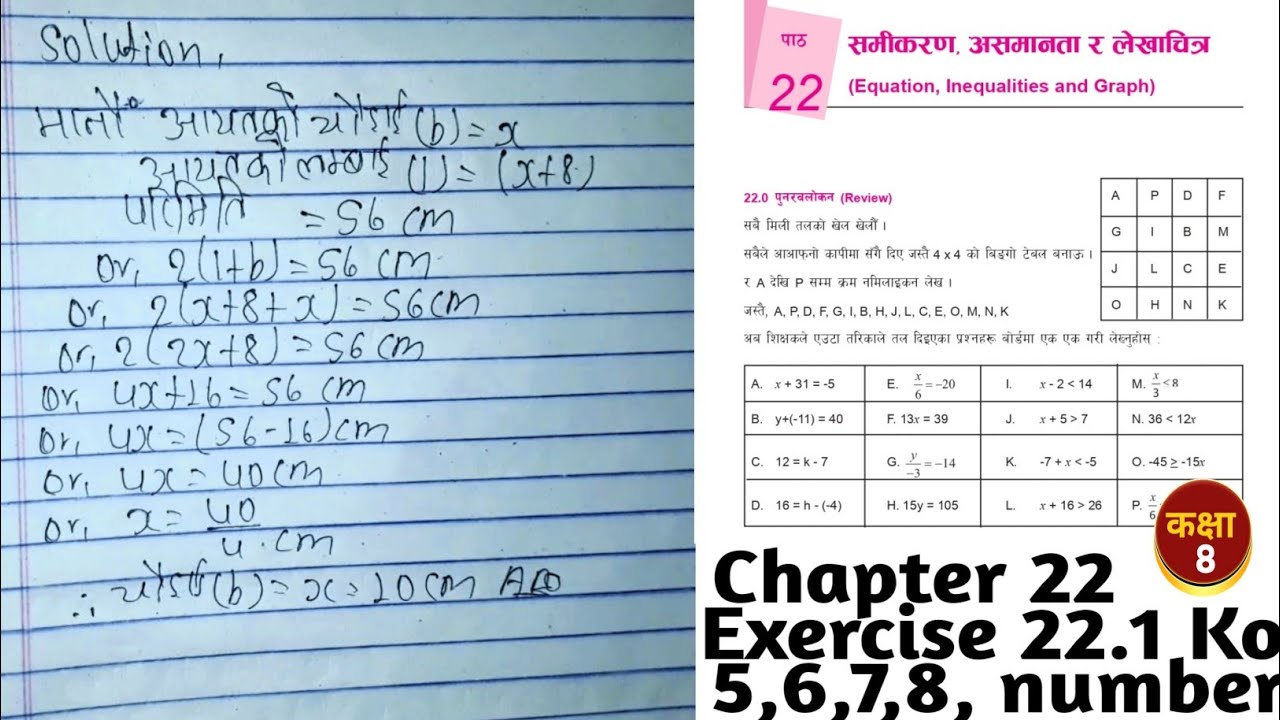 Solution,
मानौं आयतको चौडाई (b) = x
आयतको लम्बाई (l) = (x+8)
परिमिति = 56 cm
or, 2(l+b) = 56 cm
or, 2(x+8+x) = 56 cm
or, 2(2x+8) = 56 cm
or, 4x+16 = 56 cm
or, 4x = (56-16) cm
or, 4x = 40 cm
or, x = 40/4 cm
∴ चौडाई (b) = x = 10 cm
पाठ 22
समीकरण, असमानता र लेखाचित्र
(Equation, Inequalities and Graph)
22.0 पुनरवलोकन (Review)
सबै मिली तलको खेल खेलौं ।
सबैले आआफनो कापीमा सँगै दिए जस्तै 4 x 4 को बिङ्गो टेबल बनाऊ ।
र A देखि P सम्म क्रम नमिलाइकन लेख ।
जस्तै, A, P, D, F, G, I, B, H, J, L, C, E, O, M, N, K
A P D F
G I B M
J L C E
O H N K
अब शिक्षकले एउटा तरिकाले तल दिइएका प्रश्नहरू बोर्डमा एक एक गरी लेख्नुहोस् :
A. x + 31 = -5 E. x/6 = -20 I. x - 2 < 14 M. x/3 < 8
B. y+(-11) = 40 F. 13x = 39 J. x + 5 > 7 N. 36 < 12x
C. 12 = k - 7 G. y/-3 = -14 K. -7 + x < -5 O. -45 ≥ -15x
D. 16 = h - (-4) H. 15y = 105 L. x + 16 > 26 P. x/6
कक्षा
8
Chapter 22
Exercise 22.1 Ko
5,6,7,8, number